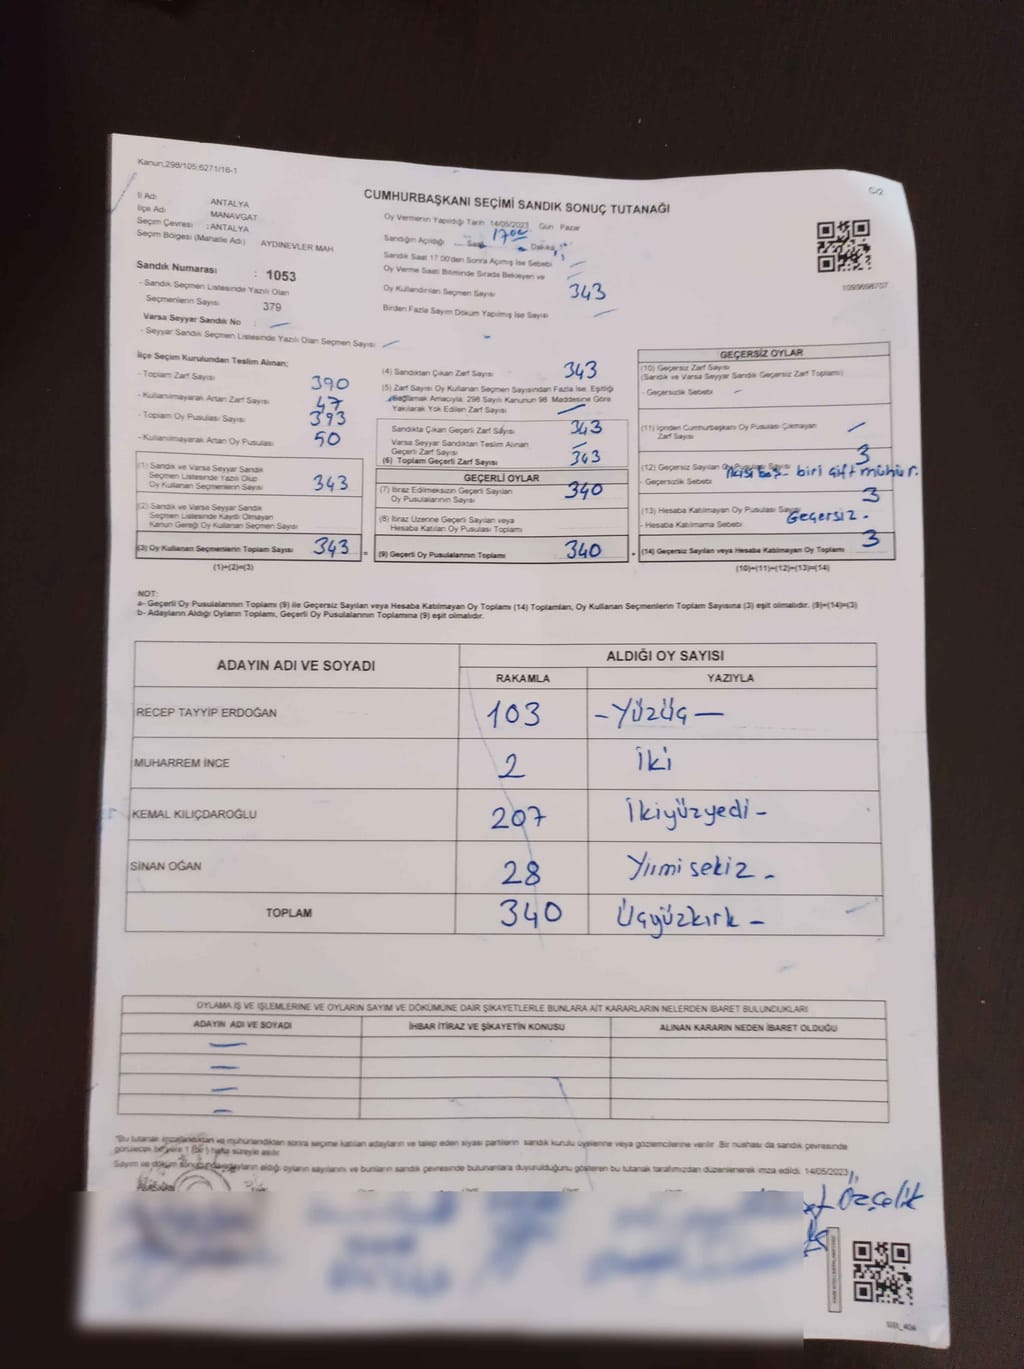 Kanun;298/105;6271/16-1
C/2
CUMHURBAŞKANI SEÇİMİ SANDIK SONUÇ TUTANAĞI
İl Adı : ANTALYA
İlçe Adı : MANAVGAT
Seçim Çevresi : ANTALYA
Seçim Bölgesi (Mahalle Adı) AYDINEVLER MAH
Sandık Numarası : 1053
- Sandık Seçmen Listesinde Yazılı Olan
Seçmenlerin Sayısı : 379
Varsa Seyyar Sandık No : —
- Seyyar Sandık Seçmen Listesinde Yazılı Olan Seçmen Sayısı : —
Oy Vermenin Yapıldığı Tarih 14/05/2023 Gün Pazar
Sandığın Açıldığı Saat 17 00 Dakika
Sandık Saat 17:00'den Sonra Açımış İse Sebebi —
Oy Verme Saati Bitiminde Sırada Bekleyen ve —
Oy Kullandırılan Seçmen Sayısı 343
Birden Fazla Sayım Döküm Yapılmış İse Sayısı —
1093698707
İlçe Seçim Kurulundan Teslim Alınan;
- Toplam Zarf Sayısı 390
- Kullanılmayarak Artan Zarf Sayısı 47
- Toplam Oy Pusulası Sayısı 393
- Kullanılmayarak Artan Oy Pusulası 50
(1) Sandık ve Varsa Seyyar Sandık
Seçmen Listesinde Yazılı Olup
Oy Kullanan Seçmenlerin Sayısı 343
(2) Sandık ve Varsa Seyyar Sandık
Seçmen Listesinde Kayıtlı Olmayan
Kanun Gereği Oy Kullanan Seçmen Sayısı
(3) Oy Kullanan Seçmenlerin Toplam Sayısı 343 =
(1)+(2)=(3)
(4) Sandıktan Çıkan Zarf Sayısı 343
(5) Zarf Sayısı Oy Kullanan Seçmen Sayısından Fazla İse, Eşitliği
Sağlamak Amacıyla, 298 Sayılı Kanunun 98. Maddesine Göre
Yakılarak Yok Edilen Zarf Sayısı —
Sandıkta Çıkan Geçerli Zarf Sayısı 343
Varsa Seyyar Sandıktan Teslim Alınan
Geçerli Zarf Sayısı —
(6) Toplam Geçerli Zarf Sayısı 343
GEÇERLİ OYLAR
(7) İtiraz Edilmeksizin Geçerli Sayılan
Oy Pusulalarının Sayısı 340
(8) İtiraz Üzerine Geçerli Sayılan veya
Hesaba Katılan Oy Pusulası Toplamı
(9) Geçerli Oy Pusulalarının Toplamı 340 +
GEÇERSİZ OYLAR
(10) Geçersiz Zarf Sayısı
(Sandık ve Varsa Seyyar Sandık Geçersiz Zarf Toplamı)
- Geçersizlik Sebebi —
(11) İçinden Cumhurbaşkanı Oy Pusulası Çıkmayan
Zarf Sayısı —
(12) Geçersiz Sayılan Oy Pusulası Sayısı 3
- Geçersizlik Sebebi ikisi boş- biri çift mühür.
(13) Hesaba Katılmayan Oy Pusulası Sayısı 3
- Hesaba Katılmama Sebebi Geçersiz.
(14) Geçersiz Sayılan veya Hesaba Katılmayan Oy Toplamı 3
(10)+(11)+(12)+(13)=(14)
NOT:
a- Geçerli Oy Pusulalarının Toplamı (9) ile Geçersiz Sayılan veya Hesaba Katılmayan Oy Toplamı (14) Toplamları, Oy Kullanan Seçmenlerin Toplam Sayısına (3) eşit olmalıdır. (9)+(14)=(3)
b- Adayların Aldığı Oyların Toplamı, Geçerli Oy Pusulalarının Toplamına (9) eşit olmalıdır.
ADAYIN ADI VE SOYADI
ALDIĞI OY SAYISI
RAKAMLA YAZIYLA
RECEP TAYYİP ERDOĞAN 103 -Yüzüç—
MUHARREM İNCE 2 İki
KEMAL KILIÇDAROĞLU 207 İkiyüzyedi-
SİNAN OĞAN 28 Yirmisekiz-
TOPLAM 340 Üçyüzkırk-
OYLAMA İŞ VE İŞLEMLERİNE VE OYLARIN SAYIM VE DÖKÜMÜNE DAİR ŞİKAYETLERLE BUNLARA AİT KARARLARIN NELERDEN İBARET BULUNDUKLARI
ADAYIN ADI VE SOYADI İHBAR İTİRAZ VE ŞİKAYETİN KONUSU ALINAN KARARIN NEDEN İBARET OLDUĞU
—
—
—
—
"Bu tutanak imzalandıktan ve mühürlendikten sonra seçime katılan adayların ve talep eden siyasi partilerin sandık kurulu üyelerine veya gözlemcilerine verilir. Bir nüshası da sandık çevresinde
görülecek bir yere 1 (bir) hafta süreyle asılır.
Sayım ve döküm sonucunda adayların aldığı oyların sayılarını ve bunların sandık çevresinde bulunanlara duyurulduğunu gösteren bu tutanak tarafımızdan düzenlenerek imza edildi. 14/05/2023
Özçelik